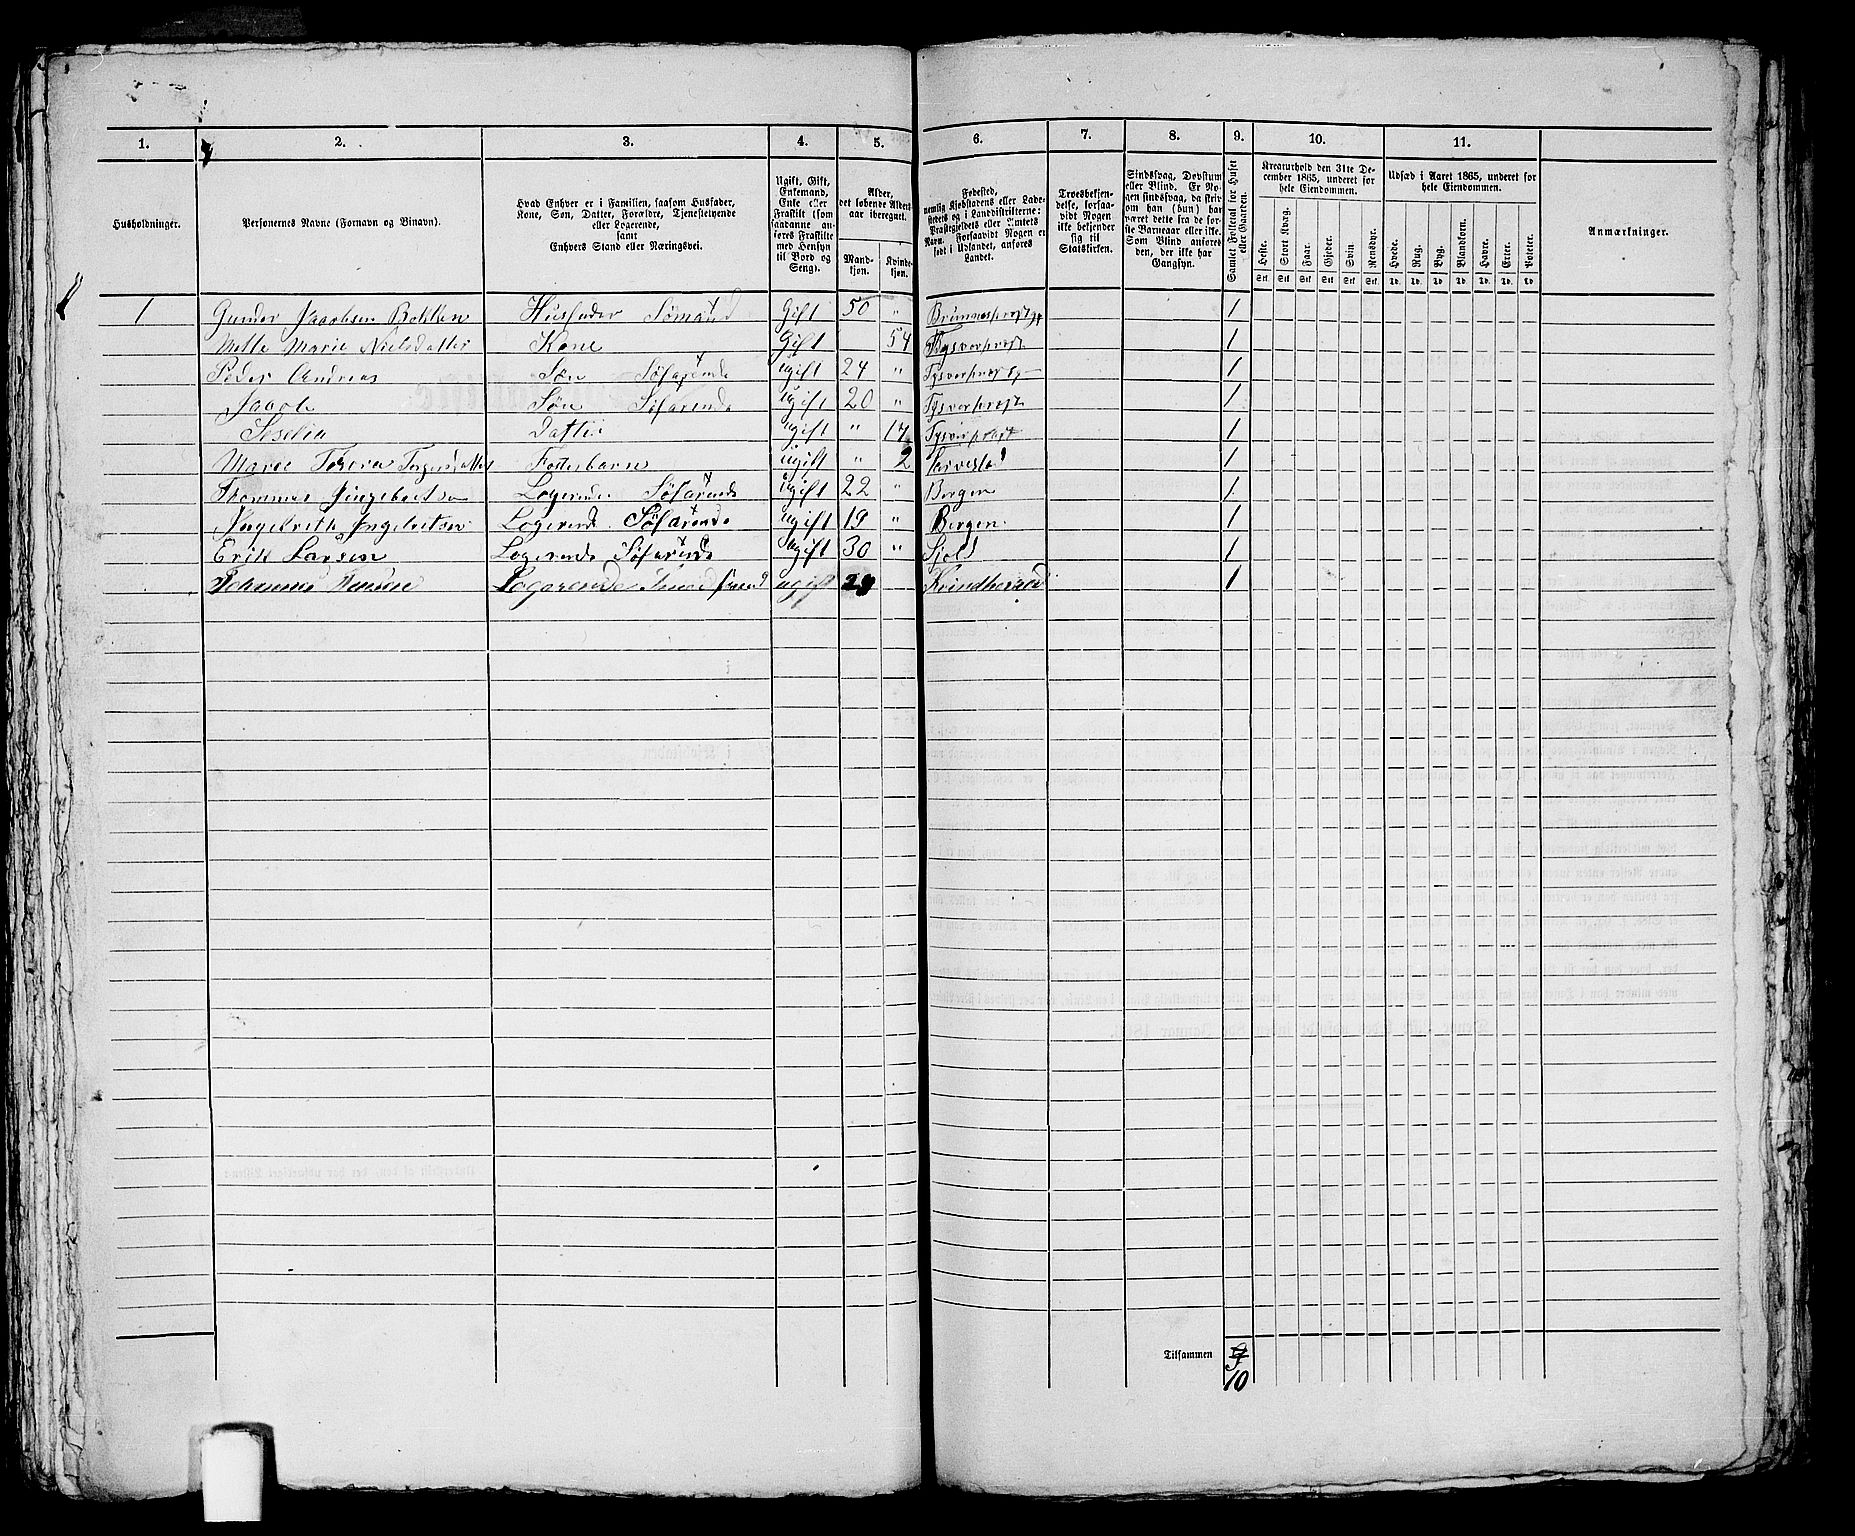 1. 2. 3. 4. 5. 6. 7. 8. 9. 10. 11.
Husholdninger.
Personernes Navne (Fornavn og Binavn).
Hvad Enhver er i Familien, saasom Husfader,
Kone, Søn, Datter, Forældre, Tjenestetyende
eller Logerende,
samt
Enhvers Stand eller Næringsvei.
Ugift, Gift,
Enkemand,
Enke eller
Fraskilt (som
saadanne an-
føres Fraskilte
med Hensyn
til Bord og
Seng).
Alder,
det løbende Alders-
aar iberegnet.
Mand-
kjøn.
Kvinde-
kjøn.
Fødested,
nemlig Kjøbstadens eller Lade-
stedets og i Landdistrikterne:
Præstegjeldets eller Amtets
Navn. Forsaavidt Nogen er
født i Udlandet, anføres
Landet.
Troesbekjen-
delse, forsaa-
vidt Nogen
ikke bekjender
sig til
Statskirken.
Sindssvag, Døvstum
eller Blind. Er No-
gen sindssvag, da skriv
om han (hun) har
været dette fra de for-
ste Barneaar eller ikke.
Som Blind anføres
den, der ikke har
Gangsyn.
Samlet Folketal for Huset
eller Gaarden.
Kreaturhold den 31te De-
cember 1865, underet for
hele Eiendommen.
Heste. Stort Kvæg. Faar. Gjeder. Svin. Rensdyr.
Stk. Stk. Stk. Stk. Stk. Stk.
Udsæd i Aaret 1865, underet for
hele Eiendommen.
Hvede. Rug. Byg. Blandkorn. Havre. Erter. Poteter.
Td. Td. Td. Td. Td. Td. Td.
Anmærkninger.
1 Gunder Jacobsen Bokken Husfader Sømand Gift 50 " 1
Mette Marie Nielsdatter Kone Gift 54 Tysvorprest 1
Peder Andreas Søn Søfarende ugift 24 " 1
Jacob Søn Søfarende ugift 20 " Tysvorprest 1
Seselia Datter ugift " 17 1
Fosterbarn ugift " 2 1
Logerende Søfarende ugift 22 " Bergen 1
Logerende Søfarende ugift 19 " Bergen 1
Erik Larsen Logerende Søfarende ugift 30 " 1
Johannes Logerende ugift 1
Tilsammen 10